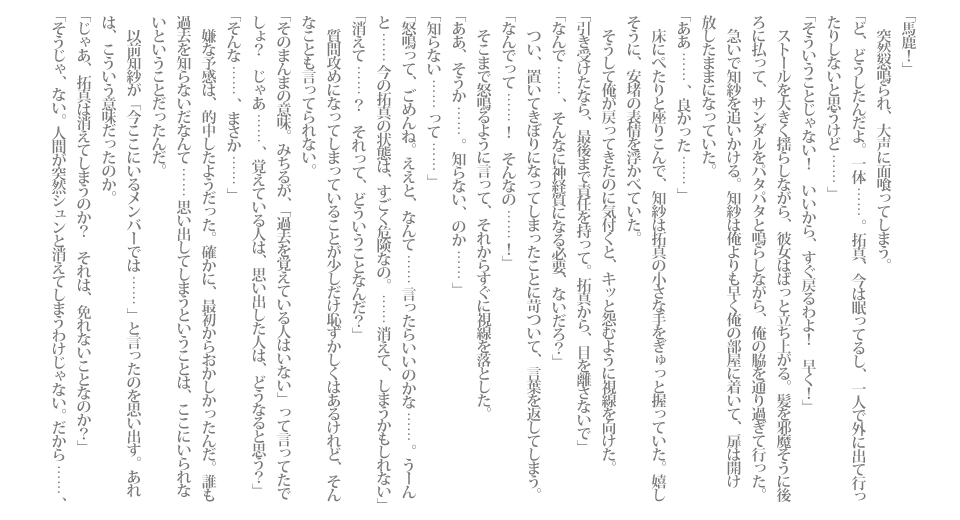 「馬鹿！」
　突然怒鳴られ、大声に面喰ってしまう。
「ど、どうしたんだよ。一体……。拓真、今は眠ってるし、一人で外に出て行っ
たりしないと思うけど……」
「そういうことじゃない！　いいから、すぐ戻るわよ！　早く！」
　ストールを大きく揺らしながら、彼女はばっと立ち上がる。髪を邪魔そうに後
ろに払って、サンダルをパタパタと鳴らしながら、俺の脇を通り過ぎて行った。
　急いで知紗を追いかける。知紗は俺よりも早く俺の部屋に着いて、扉は開け
放したままになっていた。
「ああ……、良かった……」
　床にぺたりと座りこんで、知紗は拓真の小さな手をぎゅっと握っていた。嬉し
そうに、安堵の表情を浮かべていた。
　そうして俺が戻ってきたのに気付くと、キッと怨むように視線を向けた。
「引き受けたなら、最後まで責任を持って。拓真から、目を離さないで」
「なんで……、そんなに神経質になる必要、ないだろ？」
　つい、置いてきぼりになってしまったことに苛ついて、言葉を返してしまう。
「なんでって……！　そんなの……！」
　そこまで怒鳴るように言って、それからすぐに視線を落とした。
「ああ、そうか……。知らない、のか……」
「知らない……って……」
「怒鳴って、ごめんね。ええと、なんて……言ったらいいのかな……。うーん
と……今の拓真の状態は、すごく危険なの。……消えて、しまうかもしれない」
「消えて……？　それって、どういうことなんだ？」
　質問攻めになってしまっていることが少しだけ恥ずかしくはあるけれど、そん
なことも言ってられない。
「そのまんまの意味。みちるが、「過去を覚えている人はいない」って言ってたで
しょ？　じゃあ……、覚えている人は、思い出した人は、どうなると思う？」
「そんな……、まさか……」
　嫌な予感は、的中したようだった。確かに、最初からおかしかったんだ。誰も
過去を知らないだなんて……思い出してしまうということは、ここにいられな
いということだったんだ。
　以前知紗が「今ここにいるメンバーでは……」と言ったのを思い出す。あれ
は、こういう意味だったのか。
「じゃあ、拓真は消えてしまうのか？　それは、免れないことなのか？」
「そうじゃ、ない。人間が突然シュンと消えてしまうわけじゃない。だから……、